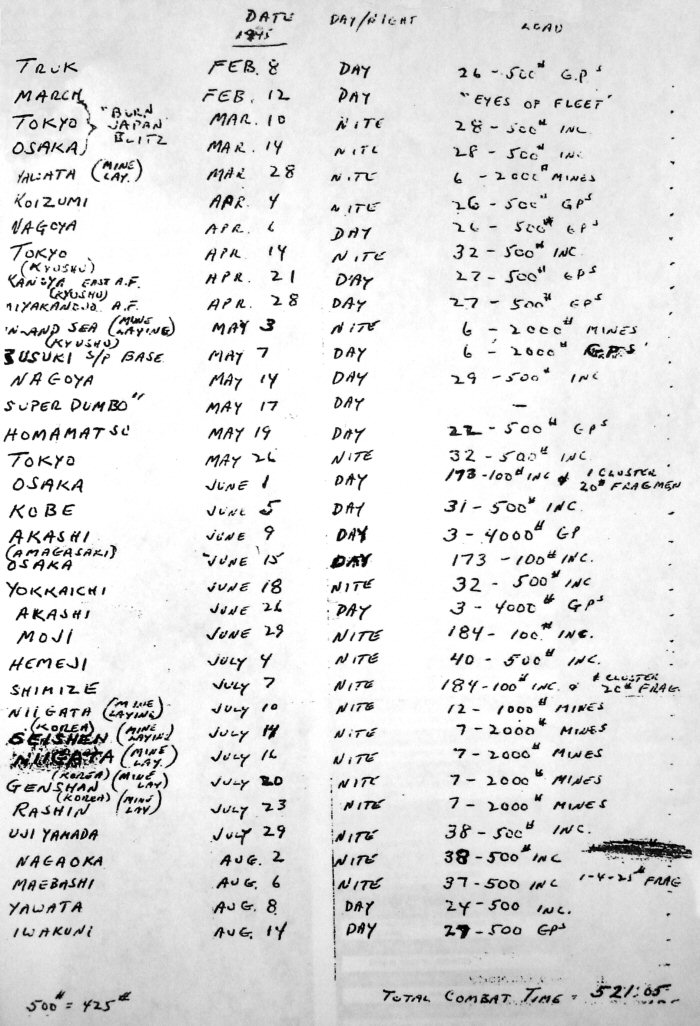 DATE DAY/NIGHT LOAD
1945
TRUK FEB. 8 DAY 26-500# G.PS
MARCH FEB. 12 DAY "EYES OF FLEET"
TOKYO "BURN JAPAN BLITZ MAR. 10 NITE 28-500# INC.
OSAKA MAR. 14 NITE 28-500# INC.
YAWATA (MINE LAY.) MAR 28 NITE 6-2000# MINES
KOIZUMI APR. 4 NITE 26-500# GPS
NAGOYA APR. 6 DAY 26-500# GPS
TOKYO APR. 14 NITE 32-500# INC.
(KYUSHU)
KANOYA EAST A.F. APR. 21 DAY 27-500# GPS
(KYUSHU)
MIYAKANOJO A.F. APR. 28 DAY 27-500# GPS
INLAND SEA (MINE LAYING) MAY 3 NITE 6-2000# MINES
(KYUSHU)
BUSUKI S/P BASE MAY 7 DAY 6-2000# G.P.S
NAGOYA MAY 14 DAY 29-500# INC
SUPER DUMBO" MAY 17 DAY —
HOMAMATSU MAY 19 DAY 22-500# GPS
TOKYO MAY 26 NITE 32-500# INC.
OSAKA JUNE 1 DAY 173-100# INC & 1 CLUSTER 20# FRAGMEN
KOBE JUNE 5 DAY 31-500# INC.
AKASHI JUNE 9 DAY 3-4000# GP
(AMAGASAKI)
OSAKA JUNE 15 DAY 173-100# INC.
YOKKAICHI JUNE 18 NITE 32-500# INC
AKASHI JUNE 26 DAY 3-4000# GPS
MOJI JUNE 29 NITE 184-100# INC.
HEMEJI JULY 4 NITE 40-500# INC.
SHIMIZE JULY 7 NITE 184-100# INC. & 1 CLUSTER 20# FRAG.
NIIGATA (MINE LAYING) JULY 10 NITE 12-1000# MINES
(KOREA)
GEISHEN (MINE LAYING) JULY 14 NITE 7-2000# MINES
NIIGATA (MINE LAY.) JULY 16 NITE 7-2000# MINES
(KOREA)
GENSHAN (MINE LAY) JULY 20 NITE 7-2000# MINES
(KOREA)
RASHIN (MINE LAY) JULY 23 NITE 7-2000# MINES
UJI YAMADA JULY 29 NITE 38-500# INC.
NAGAOKA AUG. 2 NITE 38-500# INC
MAEBASHI AUG. 6 NITE 37-500 INC 1-4-25# FRAG
YAWATA AUG. 8 DAY 24-500 INC.
IWAKUNI AUG. 14 DAY 29-500 GPS
500# = 425# TOTAL COMBAT TIME = 521:05